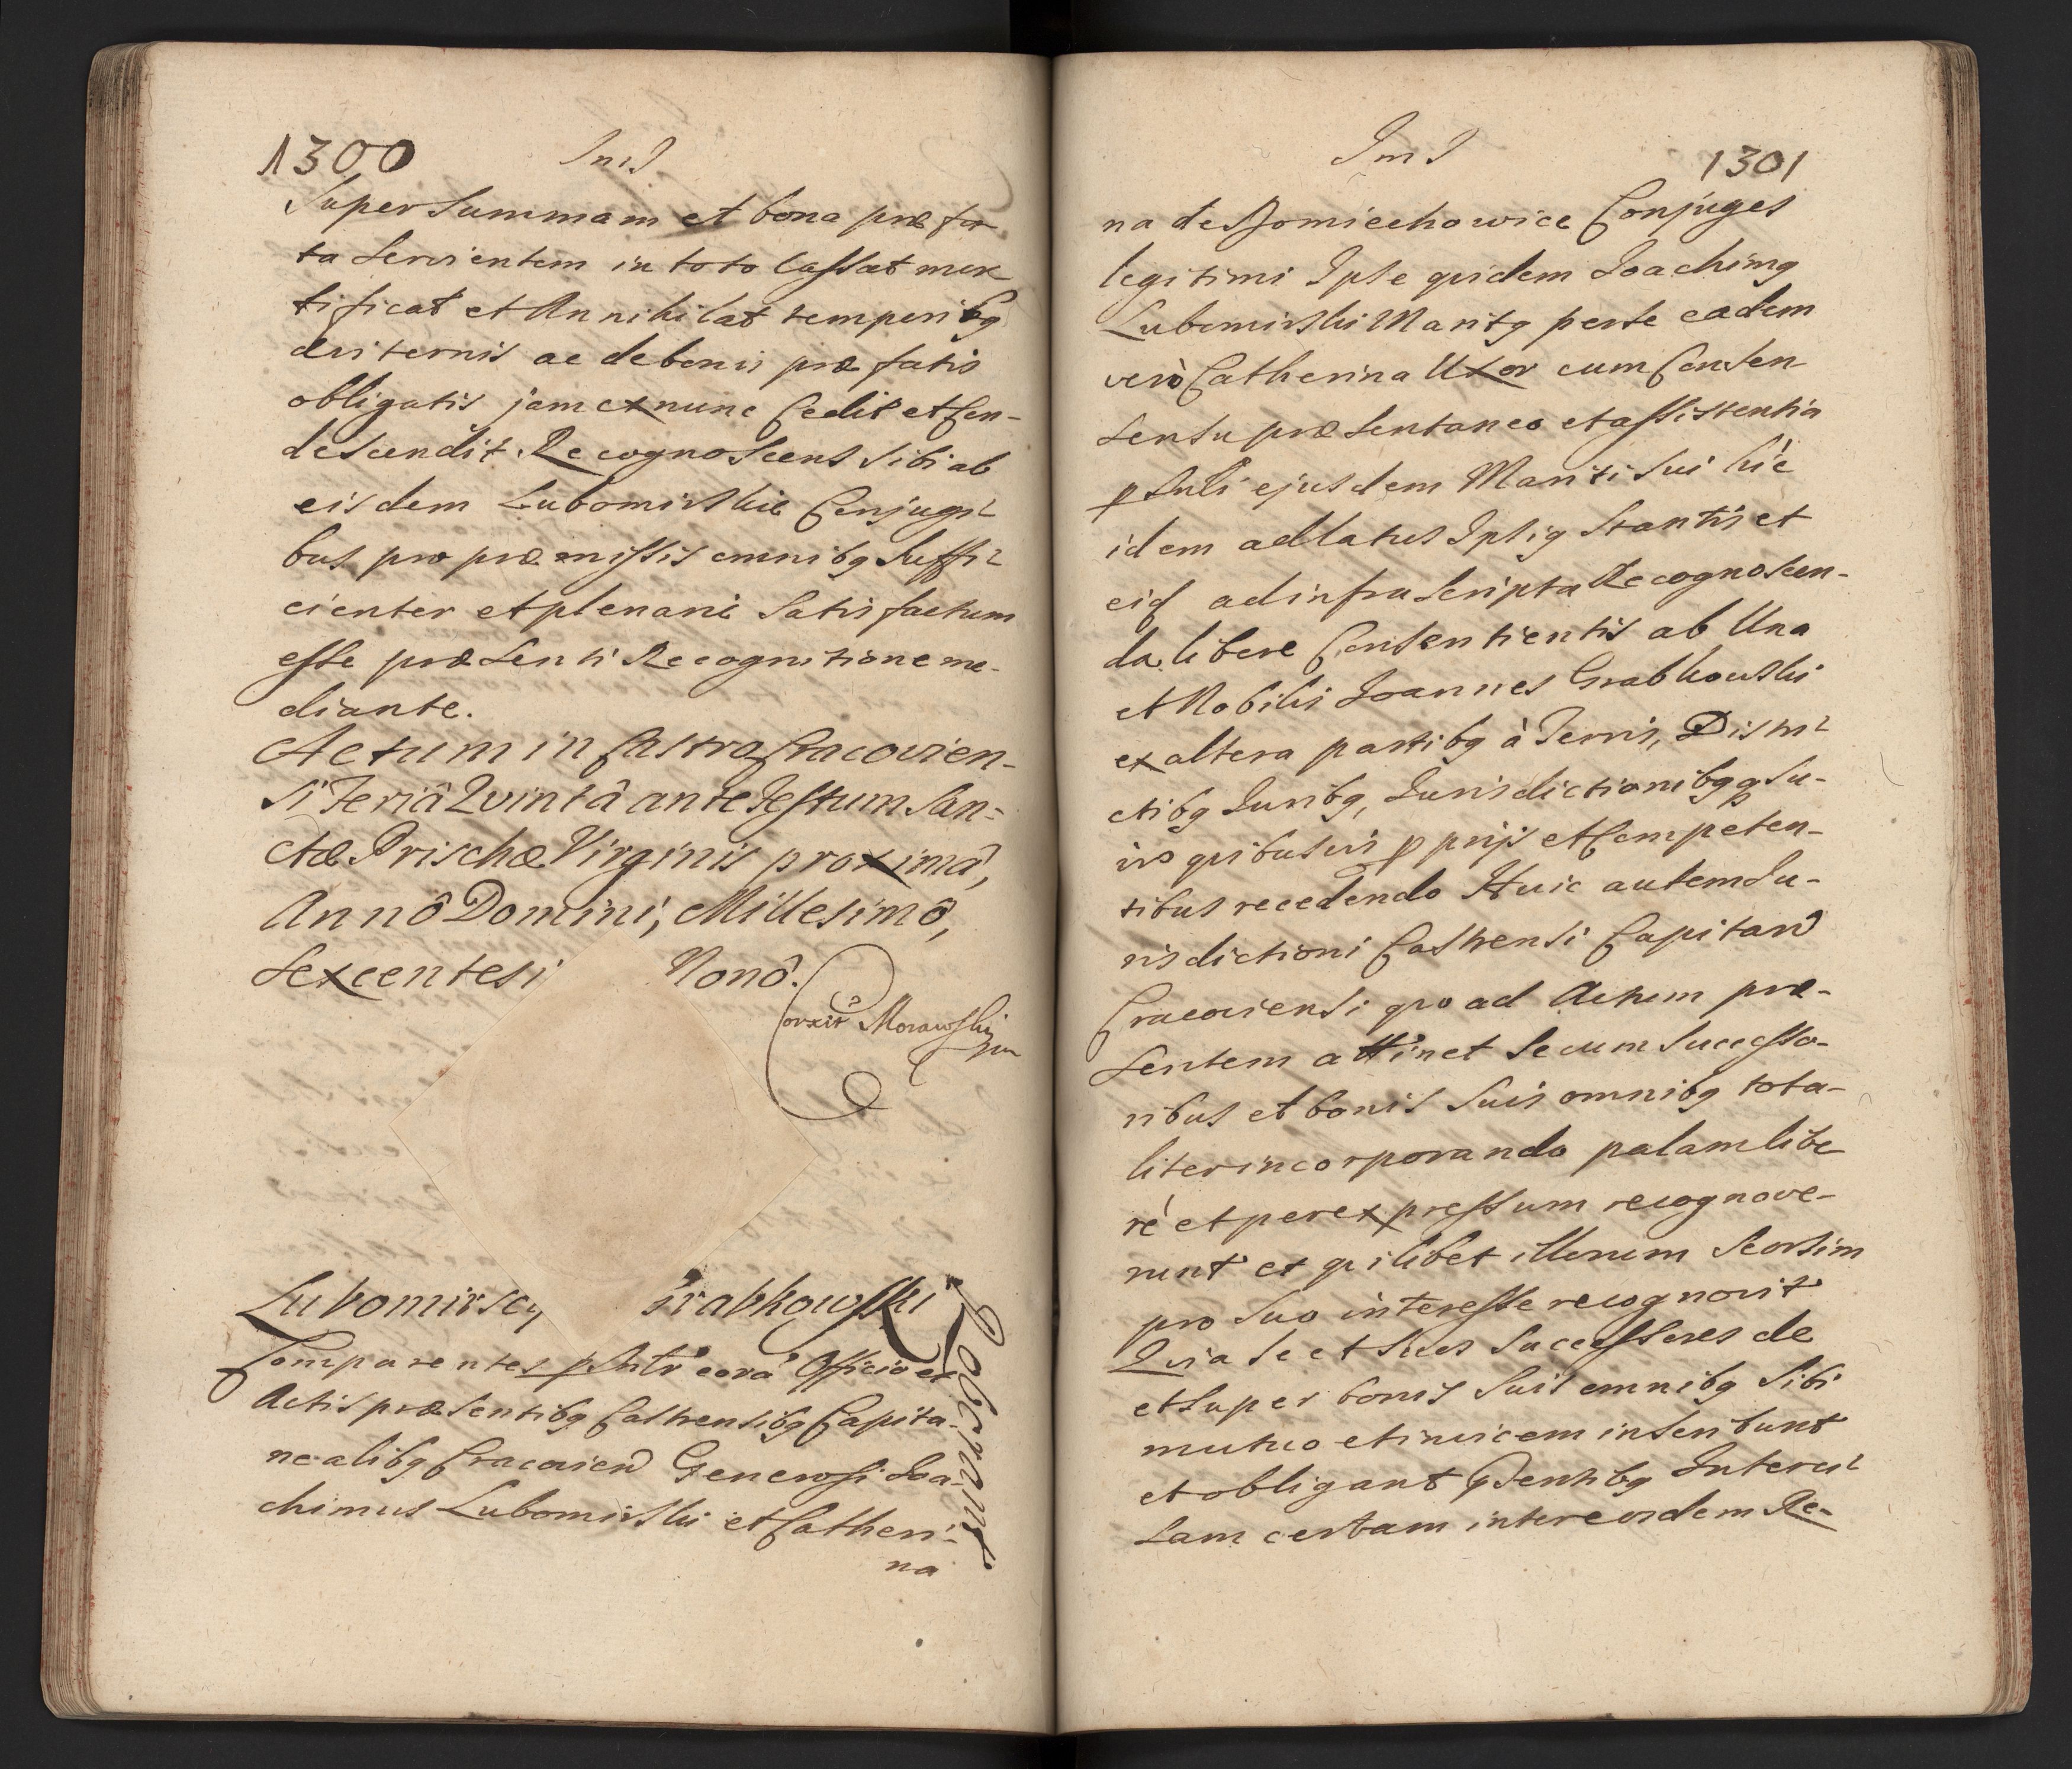 1300
Super Summam et bona præfa
ta Servientem in toto Cassat mor
tificat et Annihilat temporibq
æviternis ac de bonis præfatis
obligatis jam ex nunc Cedit et Con-
descendit. Recognoscens sibi ab
eisdem Lubomirskie Conjugi-
bus pro præmissis omnibq Suffi-
cienter et plenarie Satisfactum
esse præsenti Recognitione me-
diante.
Actum in Castro Cracovien-
si Feriâ Quintâ ante Festum San-
ctæ Prischæ Virginis proximâ,
Annô Domini, Millesimô,
Sexcentesi Nonô.
Corexit Morawski
Lubomirscy Grabkowski
Comparentes psntr corã Officio et
Actis præsentibq Castrensibq Capita-
nealibq Cracovien Generosi Joa-
chimus Lubomirski et Catheri-
na
Roborant
1301
na de Pomiechowice Conjuges
legitimi Ipse quidem Joachimq
Lubomirski Maritq per se eadem
verò Catherina Uxor cum Consen
sensu præsentaneo et assistentia
psnli ejusdem Mariti sui hic
idem ad latus Ipsiq Stantis et
eiq ad infra scripta Recognoscen-
da libere Consentientis ab Una
et Nobilis Joannes Grabkowski
ex altera partibq à Terris, Distri-
ctibq Juribq, Jurisdictionibqq Su-
is quibusvis pprijs et Competen-
tibus recedendo Huic autem Ju-
risdictioni Castrensi Capitan
Cracoviensi quo ad Actum præ-
sentem attinet Se cum Successo-
ribus et bonis Suis omnibq tota-
liter incorporando palam libe
rè et per expressum recognove-
runt et quilibet illorum Seorsim
pro Suo interesse recognovit
Quia Se et Suos Successores de
et Super bonis Suis omnibq Sibi
mutuo et invicem inscribunt
et obligant psentibq Interci-
sam certam inter eosdem Re-